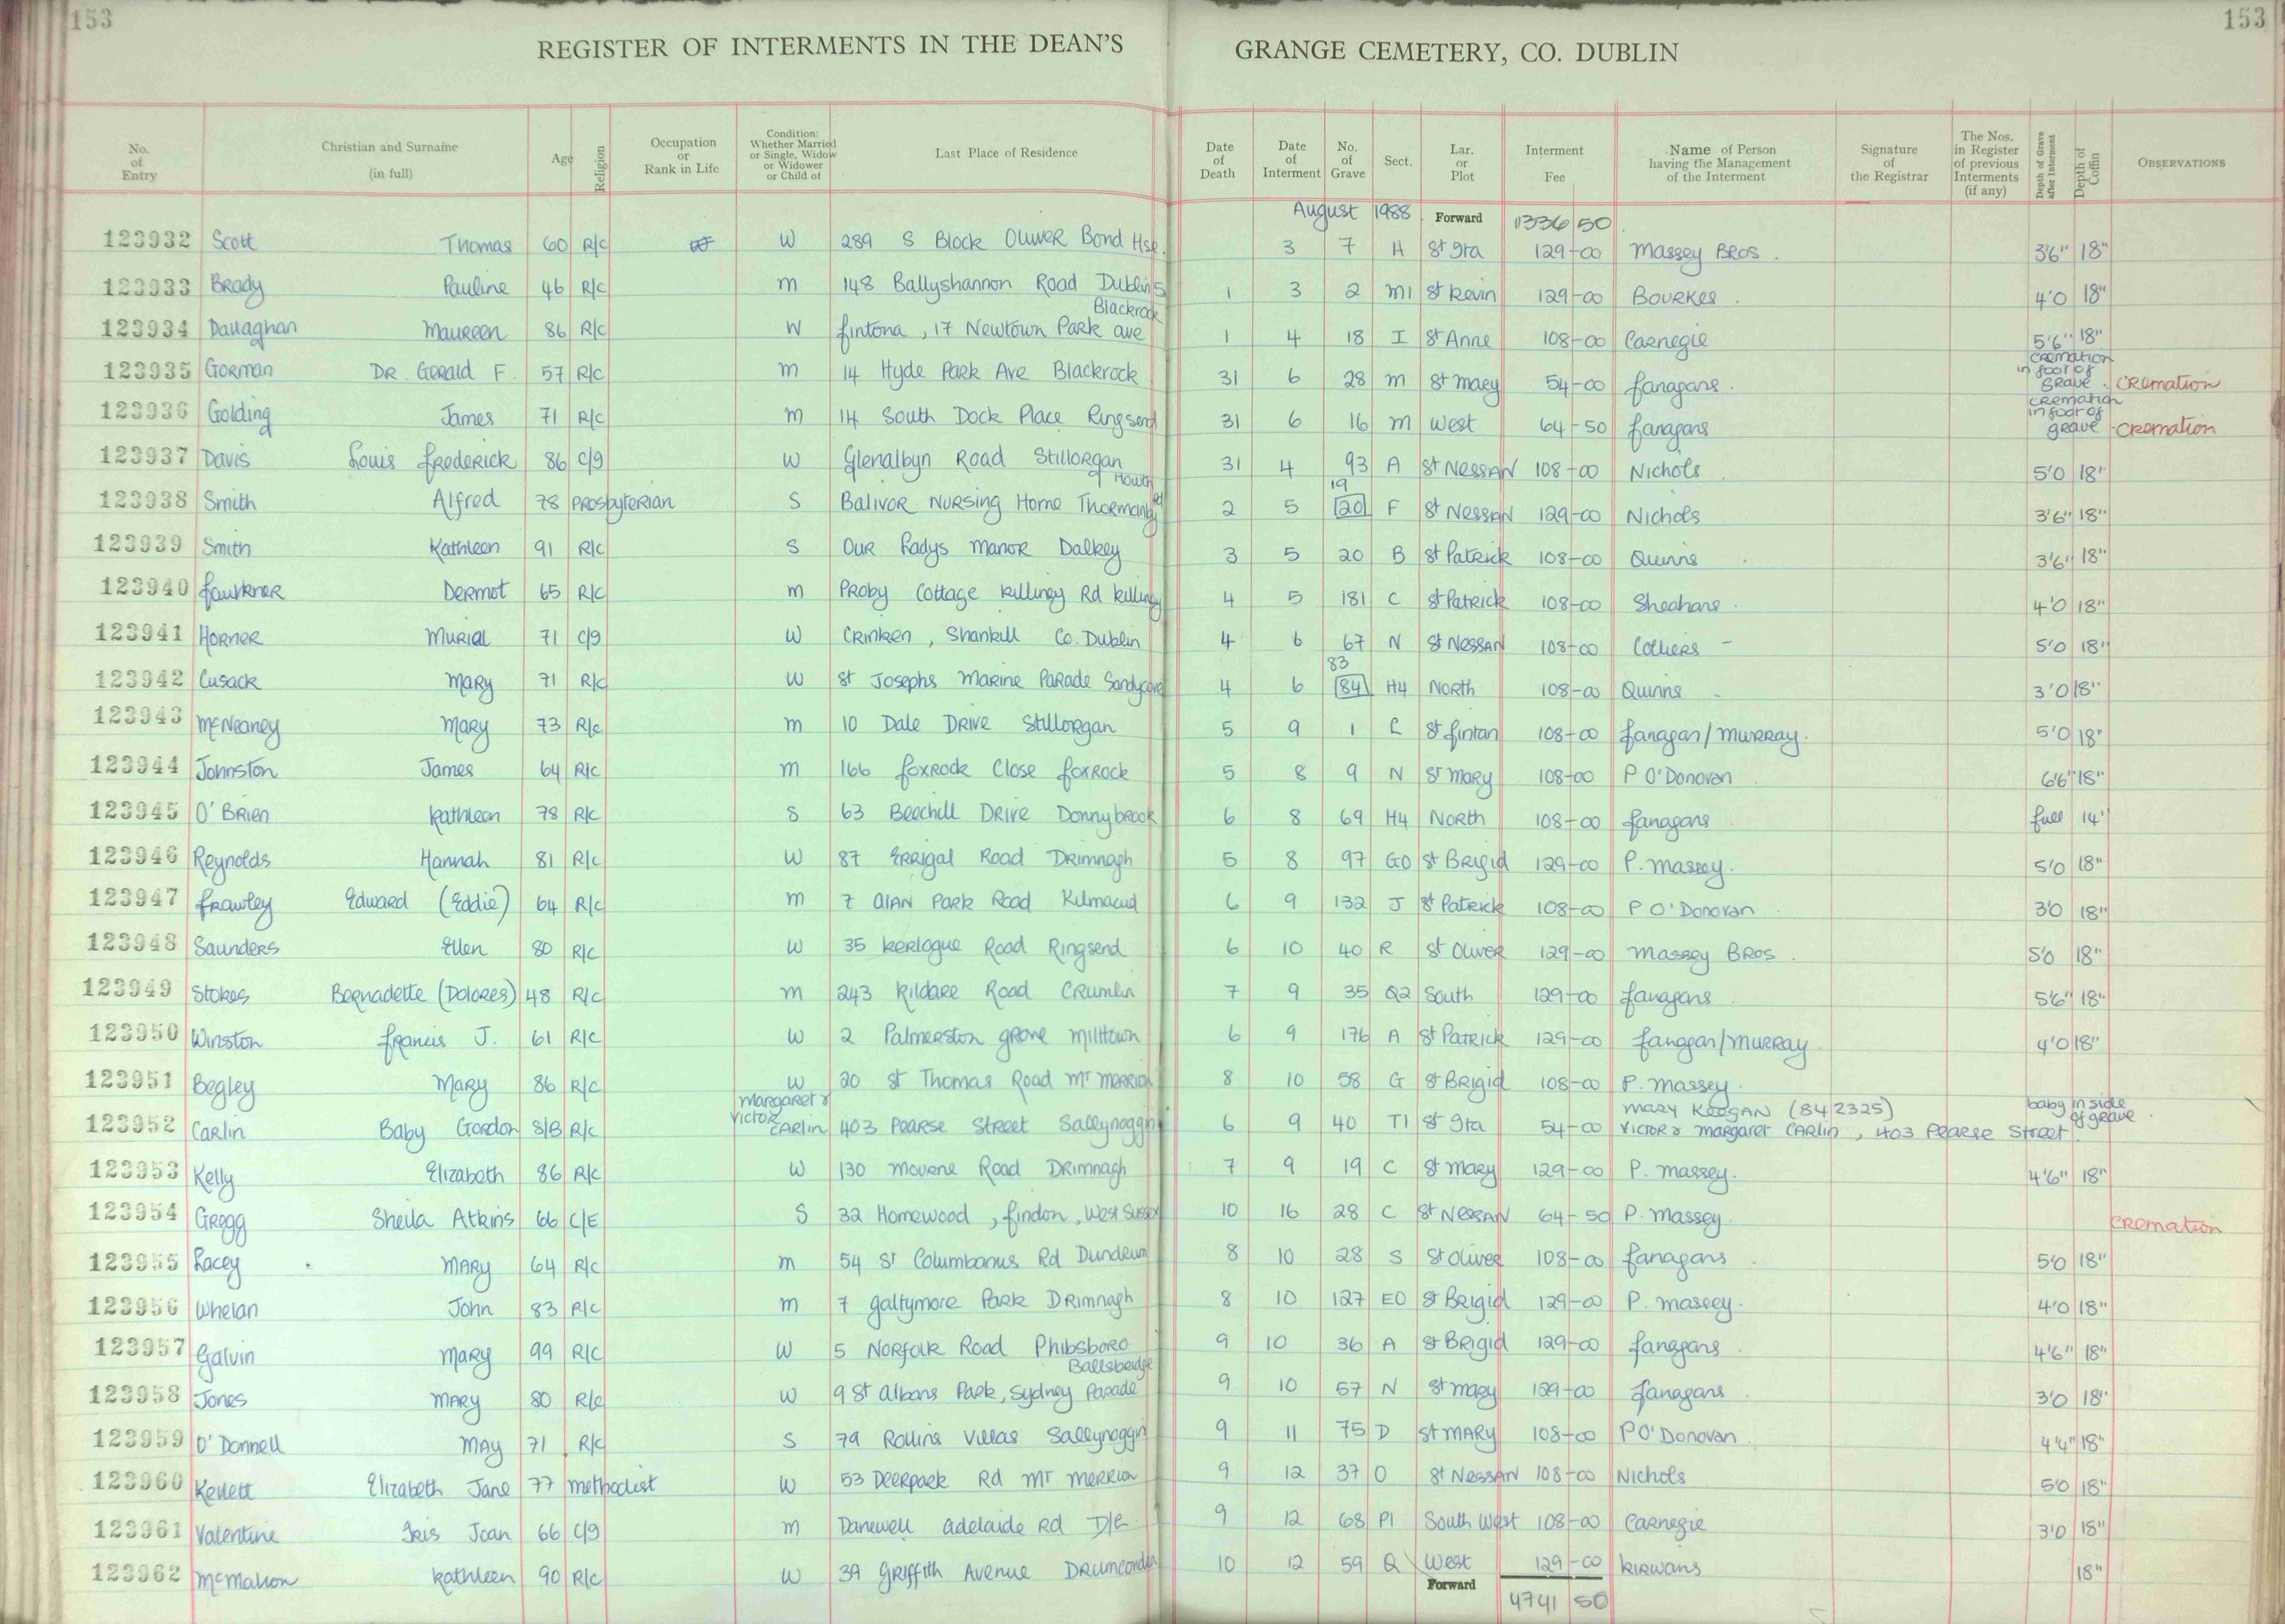 153
153
REGISTER OF INTERMENTS IN THE DEAN'S GRANGE CEMETERY, CO. DUBLIN
No. of Entry | Christian and Surname (in full) | Age | Religion | Occupation or Rank in Life | Condition: Whether Married or Single, Widow or Widower or Child of | Last Place of Residence | Date of Death | Date of Interment | No. of Grave | Sect. | Lar. or Plot | Interment Fee | Name of Person having the Management of the Interment | Signature of the Registrar | The Nos. in Register of previous Interments (if any) | Depth of Grave after Interment | Depth of Coffin | OBSERVATIONS
August 1988 Forward 1336 50
123932 Scott Thomas 60 R/C W 289 S Block Oliver Bond Hse. 3 7 H St Ita 129-00 Massey Bros. 3'6" 18"
123933 Brady Pauline 46 R/C m 148 Ballyshannon Road Dublin 5 1 3 2 M1 St Kevin 129-00 Bourkes. 4'0 18"
123934 Dallaghan Maureen 86 R/C W Fintona, 17 Newtown Park Ave Blackrock 1 4 18 I St Anne 108-00 Carnegie 5'6" 18"
123935 Gorman DR. Gerald F. 57 R/C m 14 Hyde Park Ave Blackrock 31 6 28 M St Mary 54-00 Fanagans. cremation in foot of grave. Cremation
123936 Golding James 71 R/C m 14 South Dock Place Ringsend 31 6 16 M West 64-50 Fanagans cremation in foot of grave Cremation
123937 Davis Louis Frederick 86 C/I W Glenalbyn Road Stillorgan 31 4 93 A St Nessan 108-00 Nichols 5'0 18"
123938 Smith Alfred 78 Presbyterian S Balivor Nursing Home Thormanby Rd Howth 2 5 19 20 F St Nessan 129-00 Nichols 3'6" 18"
123939 Smith Kathleen 91 R/C S Our Ladys Manor Dalkey 3 5 20 B St Patrick 108-00 Quinns 3'6" 18"
123940 Faulkner Dermot 65 R/C m Proby Cottage Killiney Rd Killiney 4 5 181 C St Patrick 108-00 Sheehans. 4'0 18"
123941 Horner Murial 71 C/I W Crinken, Shankill Co. Dublin 4 6 67 N St Nessan 108-00 Colliers - 5'0 18"
123942 Cusack Mary 71 R/C W St Josephs Marine Parade Sandycove 4 6 83 84 H4 North 108-00 Quinns 3'0 18"
123943 McNeaney Mary 73 R/C m 10 Dale Drive Stillorgan 5 9 1 L St Fintan 108-00 Fanagan/Murray. 5'0 18"
123944 Johnston James 64 R/C m 166 Foxrock Close Foxrock 5 8 9 N St Mary 108-00 P O'Donovan 6'6" 18"
123945 O'Brien Kathleen 78 R/C S 63 Beechill Drive Donnybrook 6 8 69 H4 North 108-00 Fanagans full 14"
123946 Reynolds Hannah 81 R/C W 87 Errigal Road Drimnagh 5 8 97 GO St Brigid 129-00 P. Massey. 5'0 18"
123947 Frawley Edward (Eddie) 64 R/C m 7 Alan Park Road Kilmacud 6 9 132 J St Patrick 108-00 P O'Donovan 3'0 18"
123948 Saunders Ellen 80 R/C W 35 Kerlogue Road Ringsend 6 10 40 R St Oliver 129-00 Massey Bros. 5'0 18"
123949 Stokes Bernadette (Dolores) 48 R/C m 243 Kildare Road Crumlin 7 9 35 Q2 South 129-00 Fanagans 5'6" 18"
123950 Winston Francis J. 61 R/C W 2 Palmerston Grove Milltown 6 9 176 A St Patrick 129-00 Fanagan/Murray 4'0 18"
123951 Begley Mary 86 R/C W 20 St Thomas Road Mt Merrion 8 10 58 G St Brigid 108-00 P. Massey.
123952 Carlin Baby Gordon S/B R/C Margaret & Victor Carlin 403 Pearse Street Sallynoggin 6 9 40 T1 St Ita 54-00 Mary Keegan (842325) Victor & Margaret Carlin, 403 Pearse Street. baby in side of grave
123953 Kelly Elizabeth 86 R/C W 130 Mourne Road Drimnagh 7 9 19 C St Mary 129-00 P. Massey. 4'6" 18"
123954 Gregg Sheila Atkins 66 C/E S 32 Homewood, Findon, West Sussex 10 16 28 C St Nessan 64-50 P. Massey. Cremation
123955 Lacey Mary 64 R/C m 54 St Columbanus Rd Dundrum 8 10 28 S St Oliver 108-00 Fanagans 5'0 18"
123956 Whelan John 83 R/C m 7 Galtymore Park Drimnagh 8 10 127 EO St Brigid 129-00 P. Massey. 4'0 18"
123957 Galvin Mary 99 R/C W 5 Norfolk Road Phibsboro 9 10 36 A St Brigid 129-00 Fanagans 4'6" 18"
123958 Jones Mary 80 R/C W 9 St Albans Park, Sydney Parade Ballsbridge 9 10 57 N St Mary 129-00 Fanagans 3'0 18"
123959 O'Donnell May 71 R/C S 79 Rollins Villas Sallynoggin 9 11 75 D St Mary 108-00 P O'Donovan 4'4" 18"
123960 Kellett Elizabeth Jane 77 Methodist W 53 Deerpark Rd Mt Merrion 9 12 37 O St Nessan 108-00 Nichols 5'0 18"
123961 Valentine Iris Joan 66 C/I m Danewell Adelaide Rd D/L 9 12 68 P1 South West 108-00 Carnegie 3'0 18"
123962 McMahon Kathleen 90 R/C W 39 Griffith Avenue Drumcondra 10 12 59 Q West 129-00 Kirwans 18"
Forward 4741 50